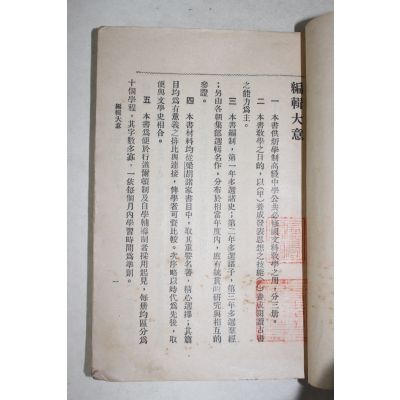 編輯大意
一　本書供新學制高級中學公共必修國文科教學之用，分三册。
二　本書教學之目的，以（甲）養成發表思想之技能，（乙）養成閱讀古書
之能力爲主。
三　本書編制，第一年多選諸史；第二年多選諸子，第三年多選羣經
；另由各朝集部選輯名作，分布於相當年度内，庶有統貫的研究與相互的
參證。
四　本書材料均從梁胡諸家書目中，取其重要名著，精心選擇；其篇
目均爲有意義之排比與連接，俾學者可資比較。次序略以時代爲先後，取
便與文學史相合。
五　本書爲便於行道爾頓制及自學輔導制者採用起見，每册均區分爲
十個學程，其字數多寡，一依每個月內學習時間爲準則。
編輯大意
一